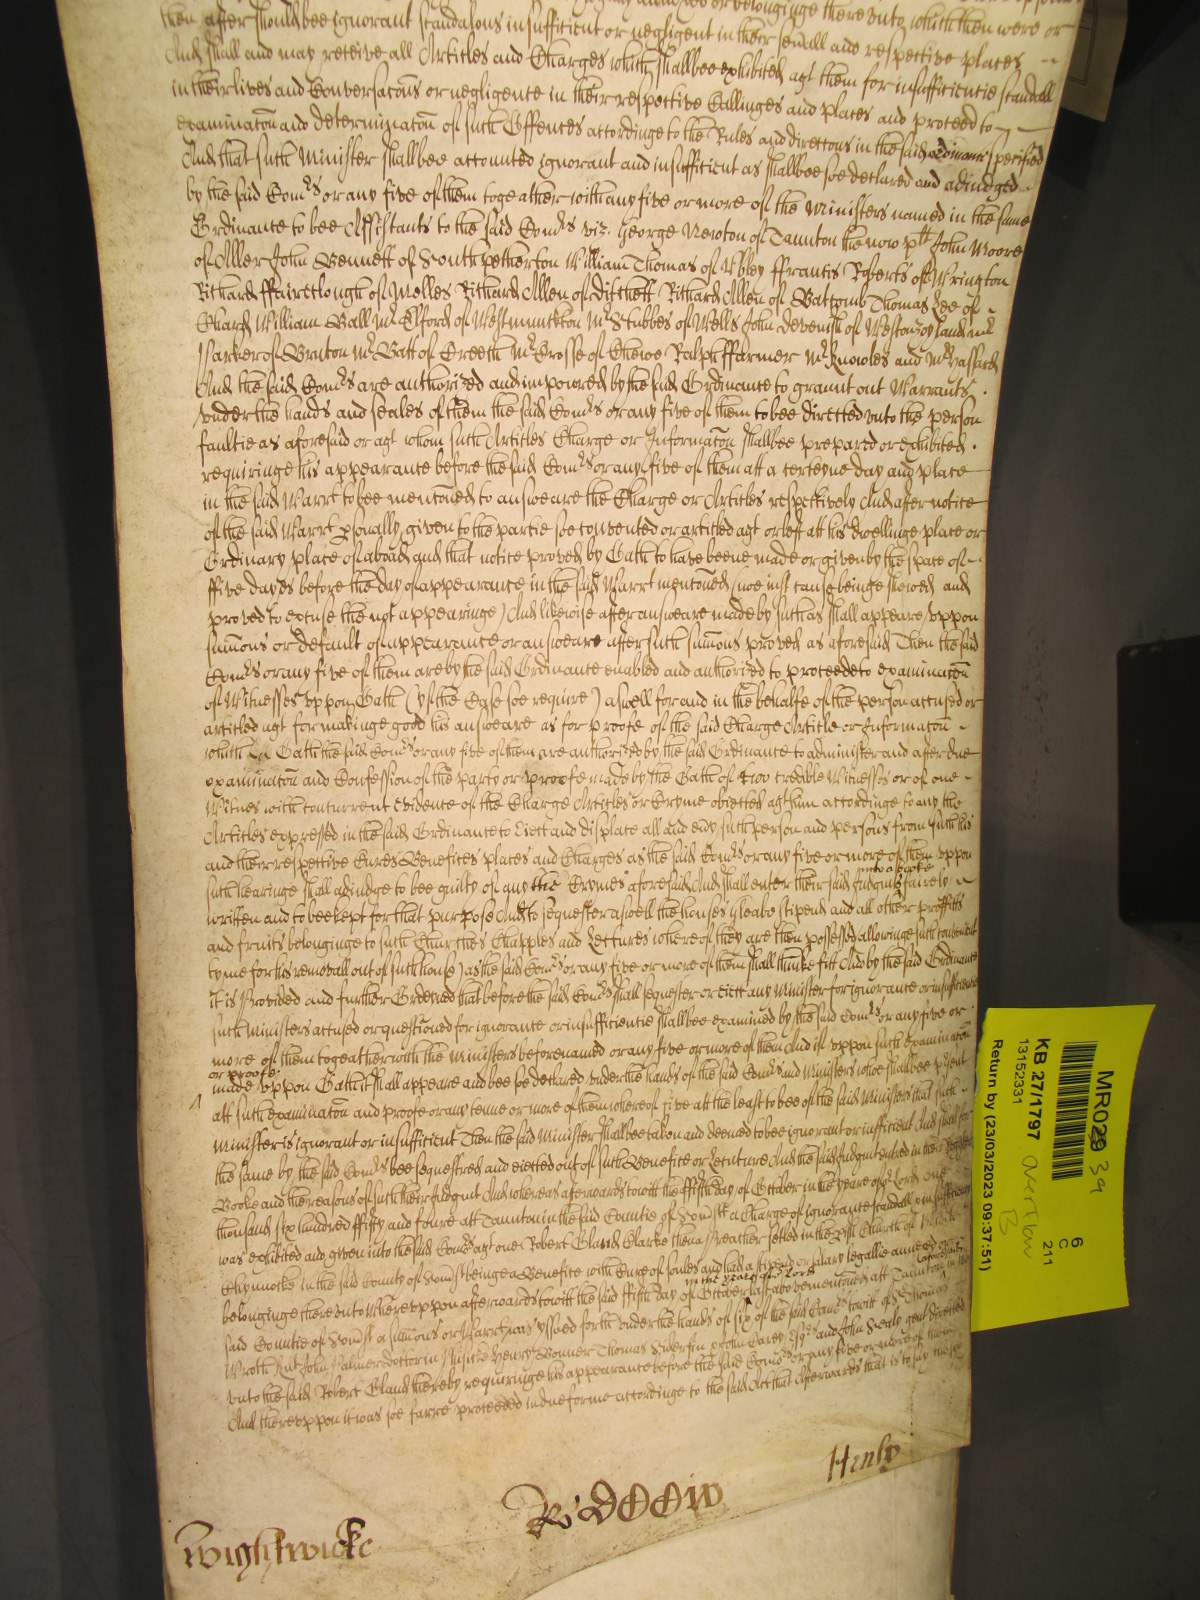 then after should bee ignorant scandalous insufficient or negligent in their sevall and respective places
And shall and may receive all Articles and Charges which shallbee exhibited agt them for insufficiencie scandall
in their lives and Conversacons or negligence in their respective Callinges and places and proceed to
examinacon and determinacon of such Offences accordinge to the Rules and direccons in the said specified
And that such Minister shallbee accounted ignorant and insufficient as shallbee soe declared and adiudged
by the said Comrs or any five of them togeather with any five or more of the Ministers named in the same
Ordinance to bee Assistants to the said Comrs viz. George Newton of Taunton the now plt John Moore
of Aller John Bennett of South petherton William Thomas of Vbley ffrancis Roberts of Wrington
Richard ffaireclough of Melles Richard Allen of Ditchett Richard Allen of Battomb Thomas Lee of
Chard William Ball Mr Elford of Westmunckton Mr Stubbes of Wells John Devenish of Westonzoyland Mr
Parker of Bruton Mr Batt of Creech Mr Crosse of Chewe Ralph ffarmer Mr Knowles and Mr Hassard
And the said Comrs are authorized and impowred by the said Ordinance to graunt out Warrants
vnder the hands and seales of them the said Comrs or any five of them to bee directed vnto the person
faultie as aforesaid or agt whom such Articles Charge or Informacon shallbee prepared or exhibited
requiringe his appearance before the said Comrs or any five of them att a certeyne day and place
in the said Warrt to bee menconed to answeare the Charge or Articles respectively And after notice
of the said Warrt psonally given to the partie soe convented or articled agt or left att his dwellinge place or
Ordinary place of aboad and that notice proved by Oath to have beene made or given by the space of
ffive dayes before the day of appearance in the said Warrt menconed (noe iust cause beinge shewed and
proved to excuse the not appearinge) And likewise after answeare made by such as shall appeare vppon
sumons or default of appearance or answeare after such sumons proved as aforesaid Then the said
Comrs or any five of them are by the said Ordinance enabled and authorized to proceede to examinacon
of Witnesses vppon Oath (yf the Case soe require) aswell for and in the behalfe of the person accused or
articled agt for makinge good his answeare as for proofe of the said Charge Article or Informacon
which Oath the said Comrs or any five of them are authorized by the said Ordinance to administer and after due
examinacon and Confession of the party or proofe made by the Oath of two credible Witnesses or of one
Witnes with concurrent Evidence of the Charge Articles or Cryme obiected agt him accordinge to any the
Articles expressed in the said Ordinance to Eiect and displace all and evy such person and persons from such his
and their respective Cures Benefices places and Charges as the said Comrs or any five or more of them vppon
into a booke
such hearinge shall adiudge to bee guilty of any the Crymes aforesaid And shall enter their said Judgmts fairely
written and to bee kept for that purpose And to sequester aswell the houses gleabe stipend and all other proffitts
and fruits belonginge to such Churches Chapples and Lectures whereof they are then possessed allowinge such convenient
tyme for his removall out of such house as the said Comrs or any five or more of them shall thinke fitt And by the said Ordinance
it is Provided and further Ordered that before the said Comrs shall sequester or eiect any Minister for ignorance or insufficiencie
such Ministers accused or questioned for ignorance or insufficiencie shallbee examined by the said Comrs or any five or
more of them togeather with the Ministers beforenamed or any five or more of them And if vppon such examinacon
or proofe
made vppon Oath it shall appeare and bee soe declared vnder the hands of the said Comrs and Ministers whoe shallbee psent
att such examinacon and proofe or any tenne or more of them whereof five att the least to bee of the said Ministers that such
Minister is ignorant or insufficient Then the said Minister shallbee taken and deemed to bee ignorant or insufficient And shall for
the same by the said Comrs bee sequestred and eiected out of such Benefice or Lecture And the said Judgmt entred in their Register
Booke and the reasons of such their Judgmt And whereas afterwards to witt the ffifth day of October in the yeare of or Lord one
thousand six hundred fifty and foure att Taunton in the said Countie of Somst a Charge of ignorance scandall
was exhibited and given into the said Comrs agt one Robert Clarke then a Preacher setled in the pish Church of
Chynnocke in the said County of Somst beinge a Benefice with Cure of soules and had a stipend or salary legallie annexed or
in the yeare of or Lord
belonginge therevnto Wherevppon afterwards to witt the said ffifth day of October last abovemenconed att Taunton in the
said Countie of Somst a sumons or Warrt was yssued forth vnder the hands of six of the said Comrs to witt of Sr Thomas
Wroth Knt John Palmer Doctor in Phisicke Henry Bonner Thomas John Carey Esqrs and John Sealy gent directed
vnto the said Robert thereby requiringe his appearance before the said Comrs or any five or more of them
And therevppon it was soe farre proceeded in due forme accordinge to the said Act that Afterwards that is to say the
Henly
Wightwicke
MR029 39
KB 27/1797
13152331
overflow
B
6
C
211
Return by (23/03/2023 09:37:51)